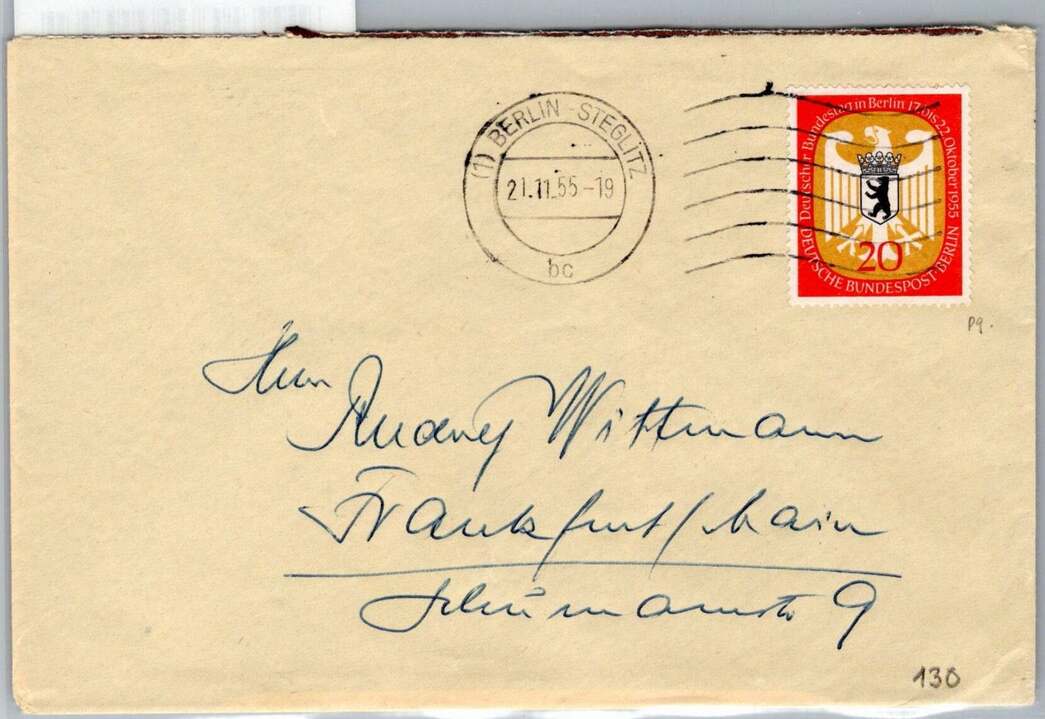 (1) BERLIN-STEGLITZ
21.11.55-19
bc
Deutscher Bundestag in Berlin 17. bis 22. Oktober 1955
20
DEUTSCHE BUNDESPOST·BERLIN
P9.
Herrn
Wittmann
Frankfurt/Main
9
130